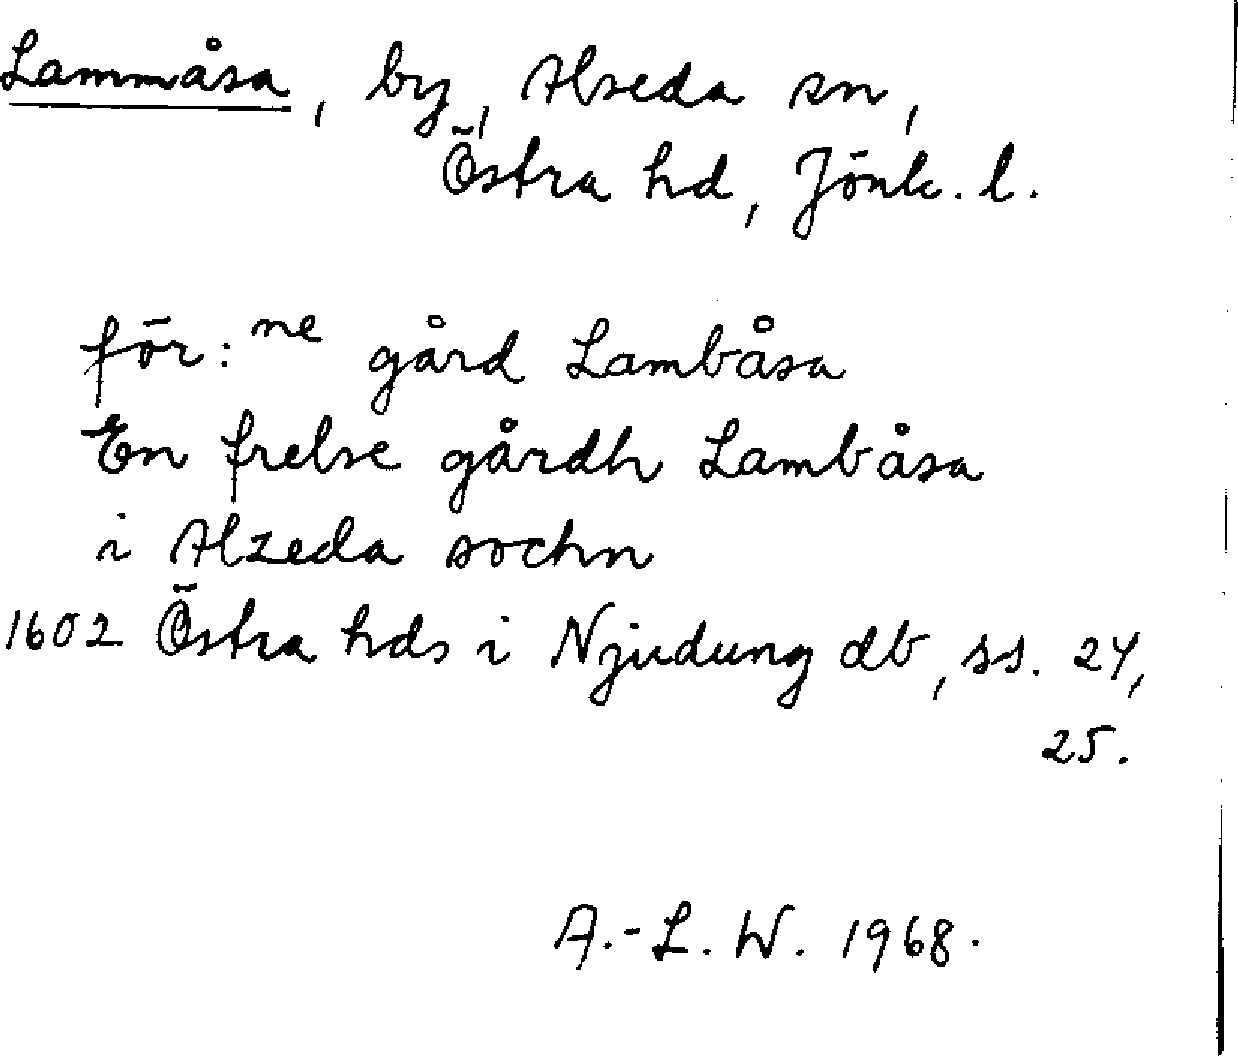 Lammåsa, by, Alseda sn,
Östra hd, Jönk. l.
för:ne gård Lambåsa
En frelse gårdh Lambåsa
i Alzeda sochn
1602 Östra hds i Njudung db, ss. 24,
25.
A.-L. W. 1968.